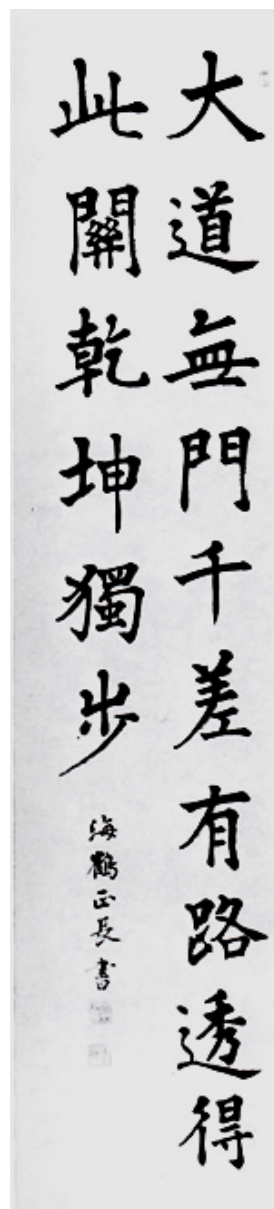 大道無門千差有路透得
此關乾坤獨步
海鶴正長書